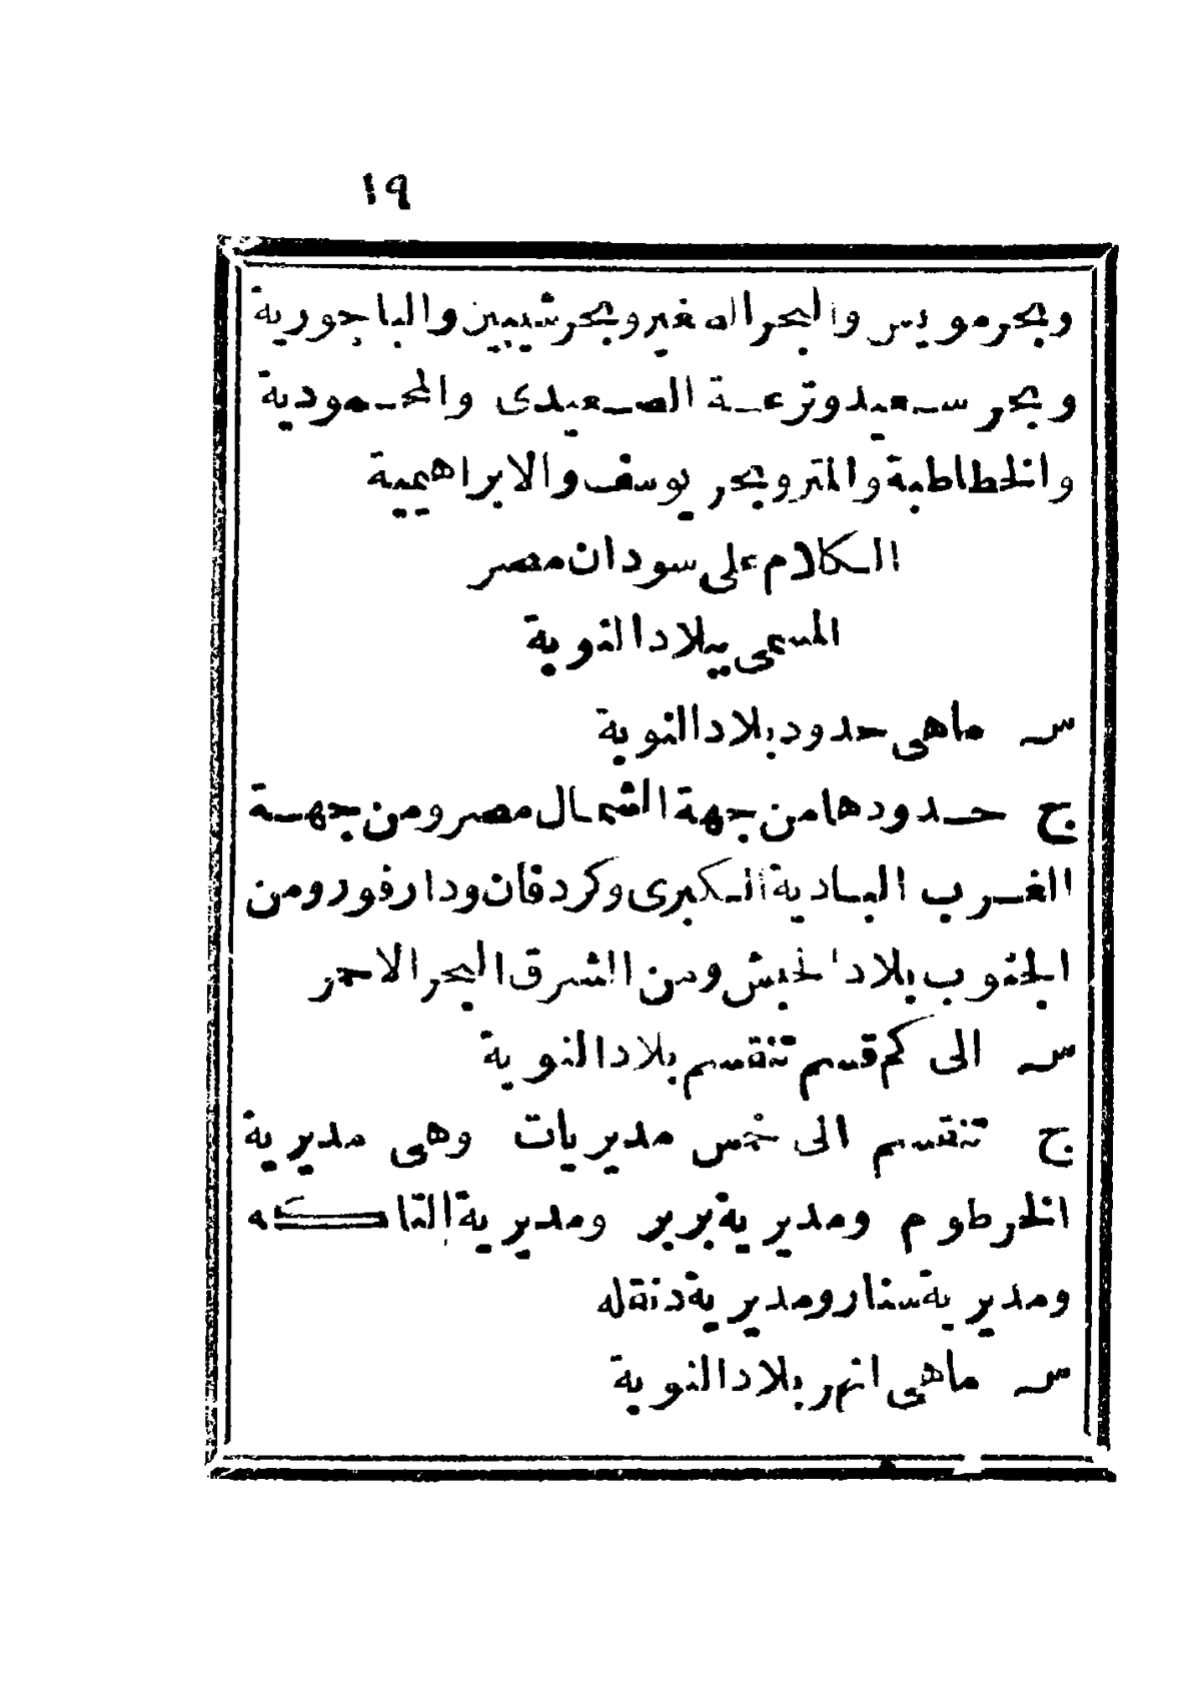 ١٩
وبحر مويس والبحر الصغير وبحر شيبين والباجورية
وبحر سعيد وترعة الصعيدى والمحمودية
والخطاطبة والمترو بحر يوسف والابراهيمية
الكلام على سودان مصر
المسمى ببلاد النوبة
س ماهى حدود بلاد النوبة
ج حدودها من جهة الشمال مصر ومن جهة
الغرب البادية الكبرى وكردفان ودارفور ومن
الجنوب بلاد الحبش ومن الشرق البحر الاحمر
س الى كم قسم تنقسم بلاد النوبة
ج تنقسم الى خمس مديريات وهى مديرية
الخرطوم ومديرية بربر ومديرية التاكه
ومديرية سنار ومديرية دنقله
س ماهى انهر بلاد النوبة